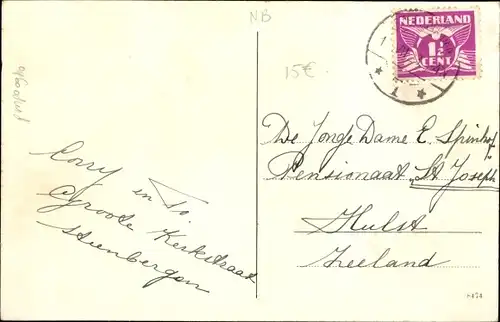 NB
15€
NEDERLAND
1½
CENT
1
Corry en To.
Groote Kerkstraat
Steenbergen
De Jonge Dame E. Spinhof
Pensionaat "St Joseph"
Hulst
Zeeland
8474